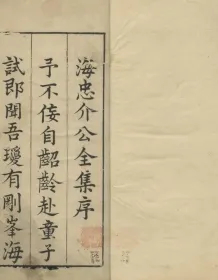 海忠介公全集序
予不佞自齠齡赴童子
試即聞吾瓊有剛峯海